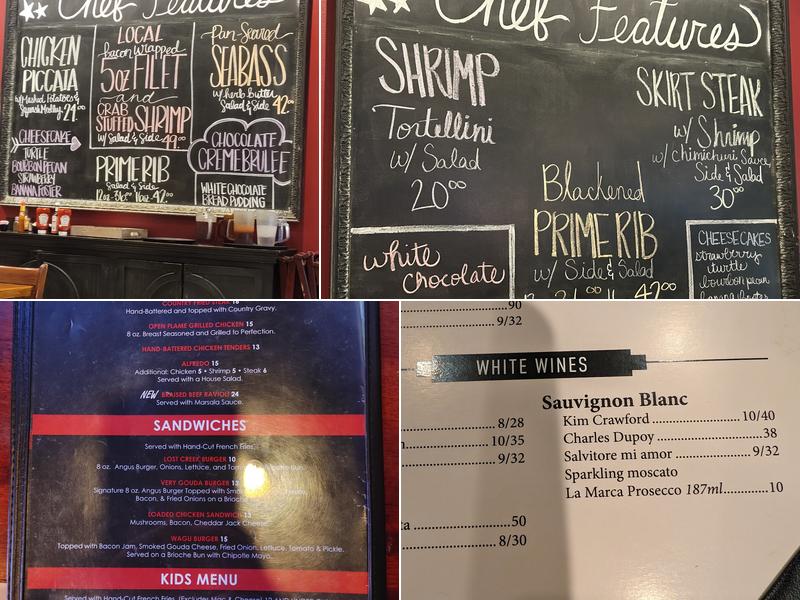 Chef Features
CHICKEN
PICCATA
w/ Mashed Potatoes &
Squash Medley 24⁰⁰
CHEESECAKE
TURTLE
BOURBON PECAN
STRAWBERRY
BANANA FOSTER
LOCAL
bacon wrapped
5oz FILET
and
CRAB
STUFFED SHRIMP
w/ Salad & Side 49⁰⁰
PRIME RIB
Salad & Side
12oz-36⁰⁰ 16oz-42⁰⁰
Pan-Seared
SEABASS
w/ herb butter
Salad & Side 42⁰⁰
CHOCOLATE
CREME BRULEE
WHITE CHOCOLATE
BREAD PUDDING
Chef Features
SHRIMP
Tortellini
w/ Salad
20⁰⁰
white
chocolate
Blackened
PRIME RIB
w/ Side & Salad
42⁰⁰
SKIRT STEAK
w/ Shrimp
w/ chimichuri Sauce
Side & Salad
30⁰⁰
CHEESECAKES
strawberry
turtle
bourbon pecan
banana foster
COUNTRY FRIED STEAK 16
Hand-Battered and topped with Country Gravy.
OPEN FLAME GRILLED CHICKEN 15
8 oz. Breast Seasoned and Grilled to Perfection.
HAND-BATTERED CHICKEN TENDERS 13
ALFREDO 15
Additional: Chicken 5 • Shrimp 5 • Steak 6
Served with a House Salad.
NEW BRAISED BEEF RAVIOLI 24
Served with Marsala Sauce.
SANDWICHES
Served with Hand-Cut French Fries.
LOST CREEK BURGER 10
8 oz. Angus Burger, Onions, Lettuce, and Bun.
VERY GOUDA BURGER 13
Signature 8 oz. Angus Burger Topped with
Bacon, & Fried Onions on a Brioche
LOADED CHICKEN SANDWICH 13
Mushrooms, Bacon, Cheddar Jack Cheese
WAGU BURGER 15
Topped with Bacon Jam, Smoked Gouda Cheese, Fried Onion, Lettuce, Tomato & Pickle.
Served on a Brioche Bun with Chipotle Mayo.
KIDS MENU
Served with Hand-Cut French Fries.
90
9/32
WHITE WINES
8/28
10/35
9/32
50
8/30
Sauvignon Blanc
Kim Crawford 10/40
Charles Dupoy 38
Salvitore mi amor 9/32
Sparkling moscato
La Marca Prosecco 187ml 10